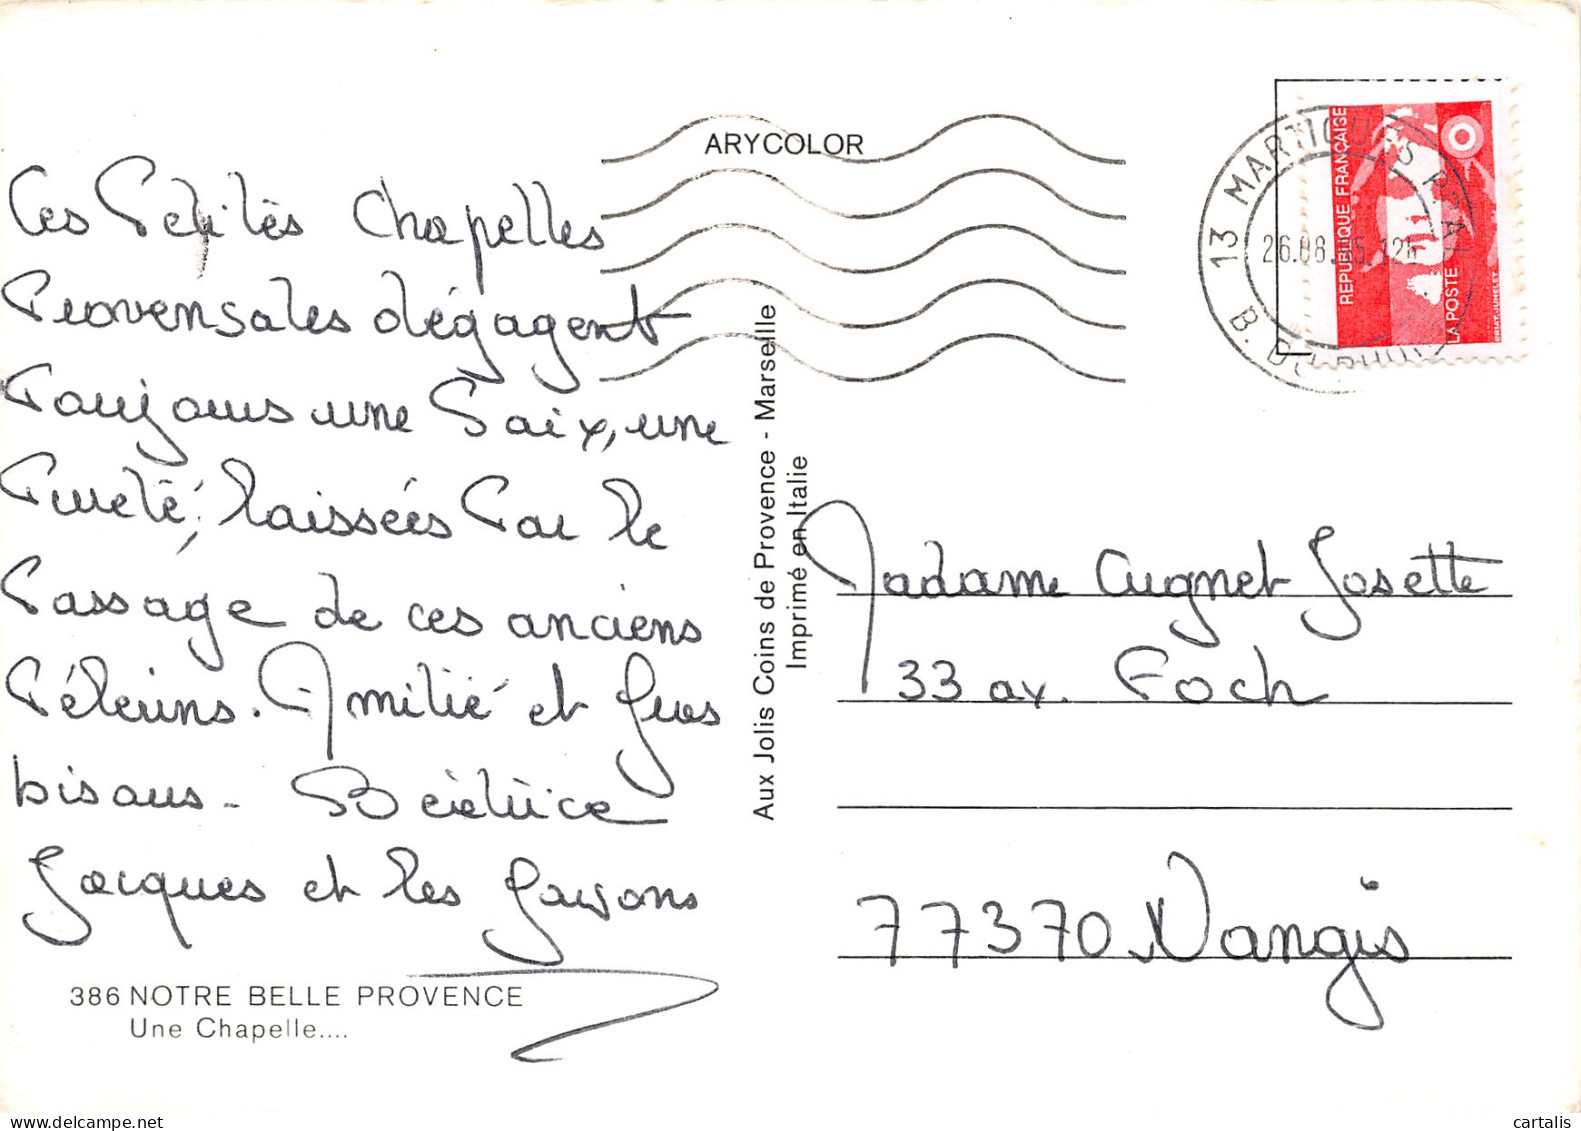 ARYCOLOR
Ces Petites Chapelles
Provensales dégagent
Toujours une Paix, une
Pureté, laissées Par le
Passage de ces anciens
Pélerins. Amitié et gros
bisous - Béatrice
Jacques et les garçons
386 NOTRE BELLE PROVENCE
Une Chapelle....
Aux Jolis Coins de Provence - Marseille
Imprimé en Italie
13 MARTIGUES R.P. AL
B. DU RHONE
RÉPUBLIQUE FRANÇAISE
LA POSTE
BRIAT-JUMELET
Madame Cugnet Josette
33 av. Foch
77370 Nangis
cartalis